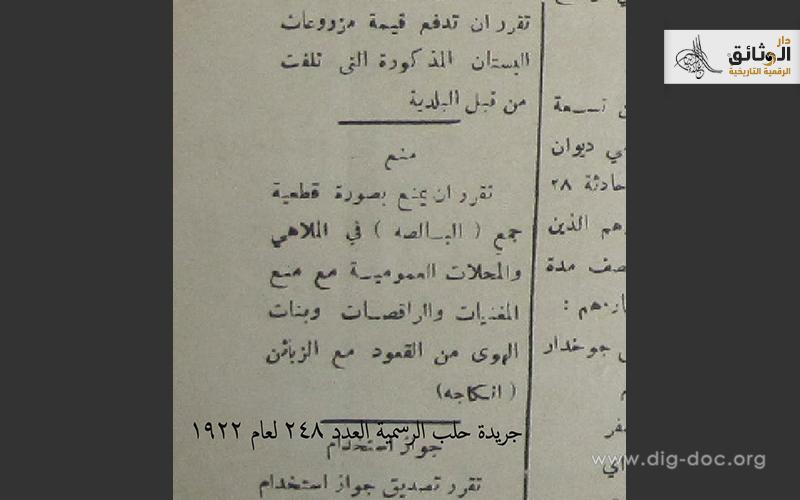 تقرر ان تدفع قيمة مزروعات
البستان المذكورة التى تلفت
من قبل البلدية
منع
تقرر ان يمنع بصورة قطعية
جمع ( البـالصه ) في الملاهي
والمحلات العموميـة مع منع
المغنيات والراقصـات وبنات
الهوى من القعود مع الزبائن
( انـكاجه)
جواز استخدام
تقرر تصديق جواز استخدام
تسـعة
ديوان
حادثة ٢٨
الذين
مدة
جوخدار
جريدة حلب الرسمية العدد ٢٤٨ لعام ١٩٢٢
دار
الوثائق
الرقمية التاريخية
www.dig-doc.org